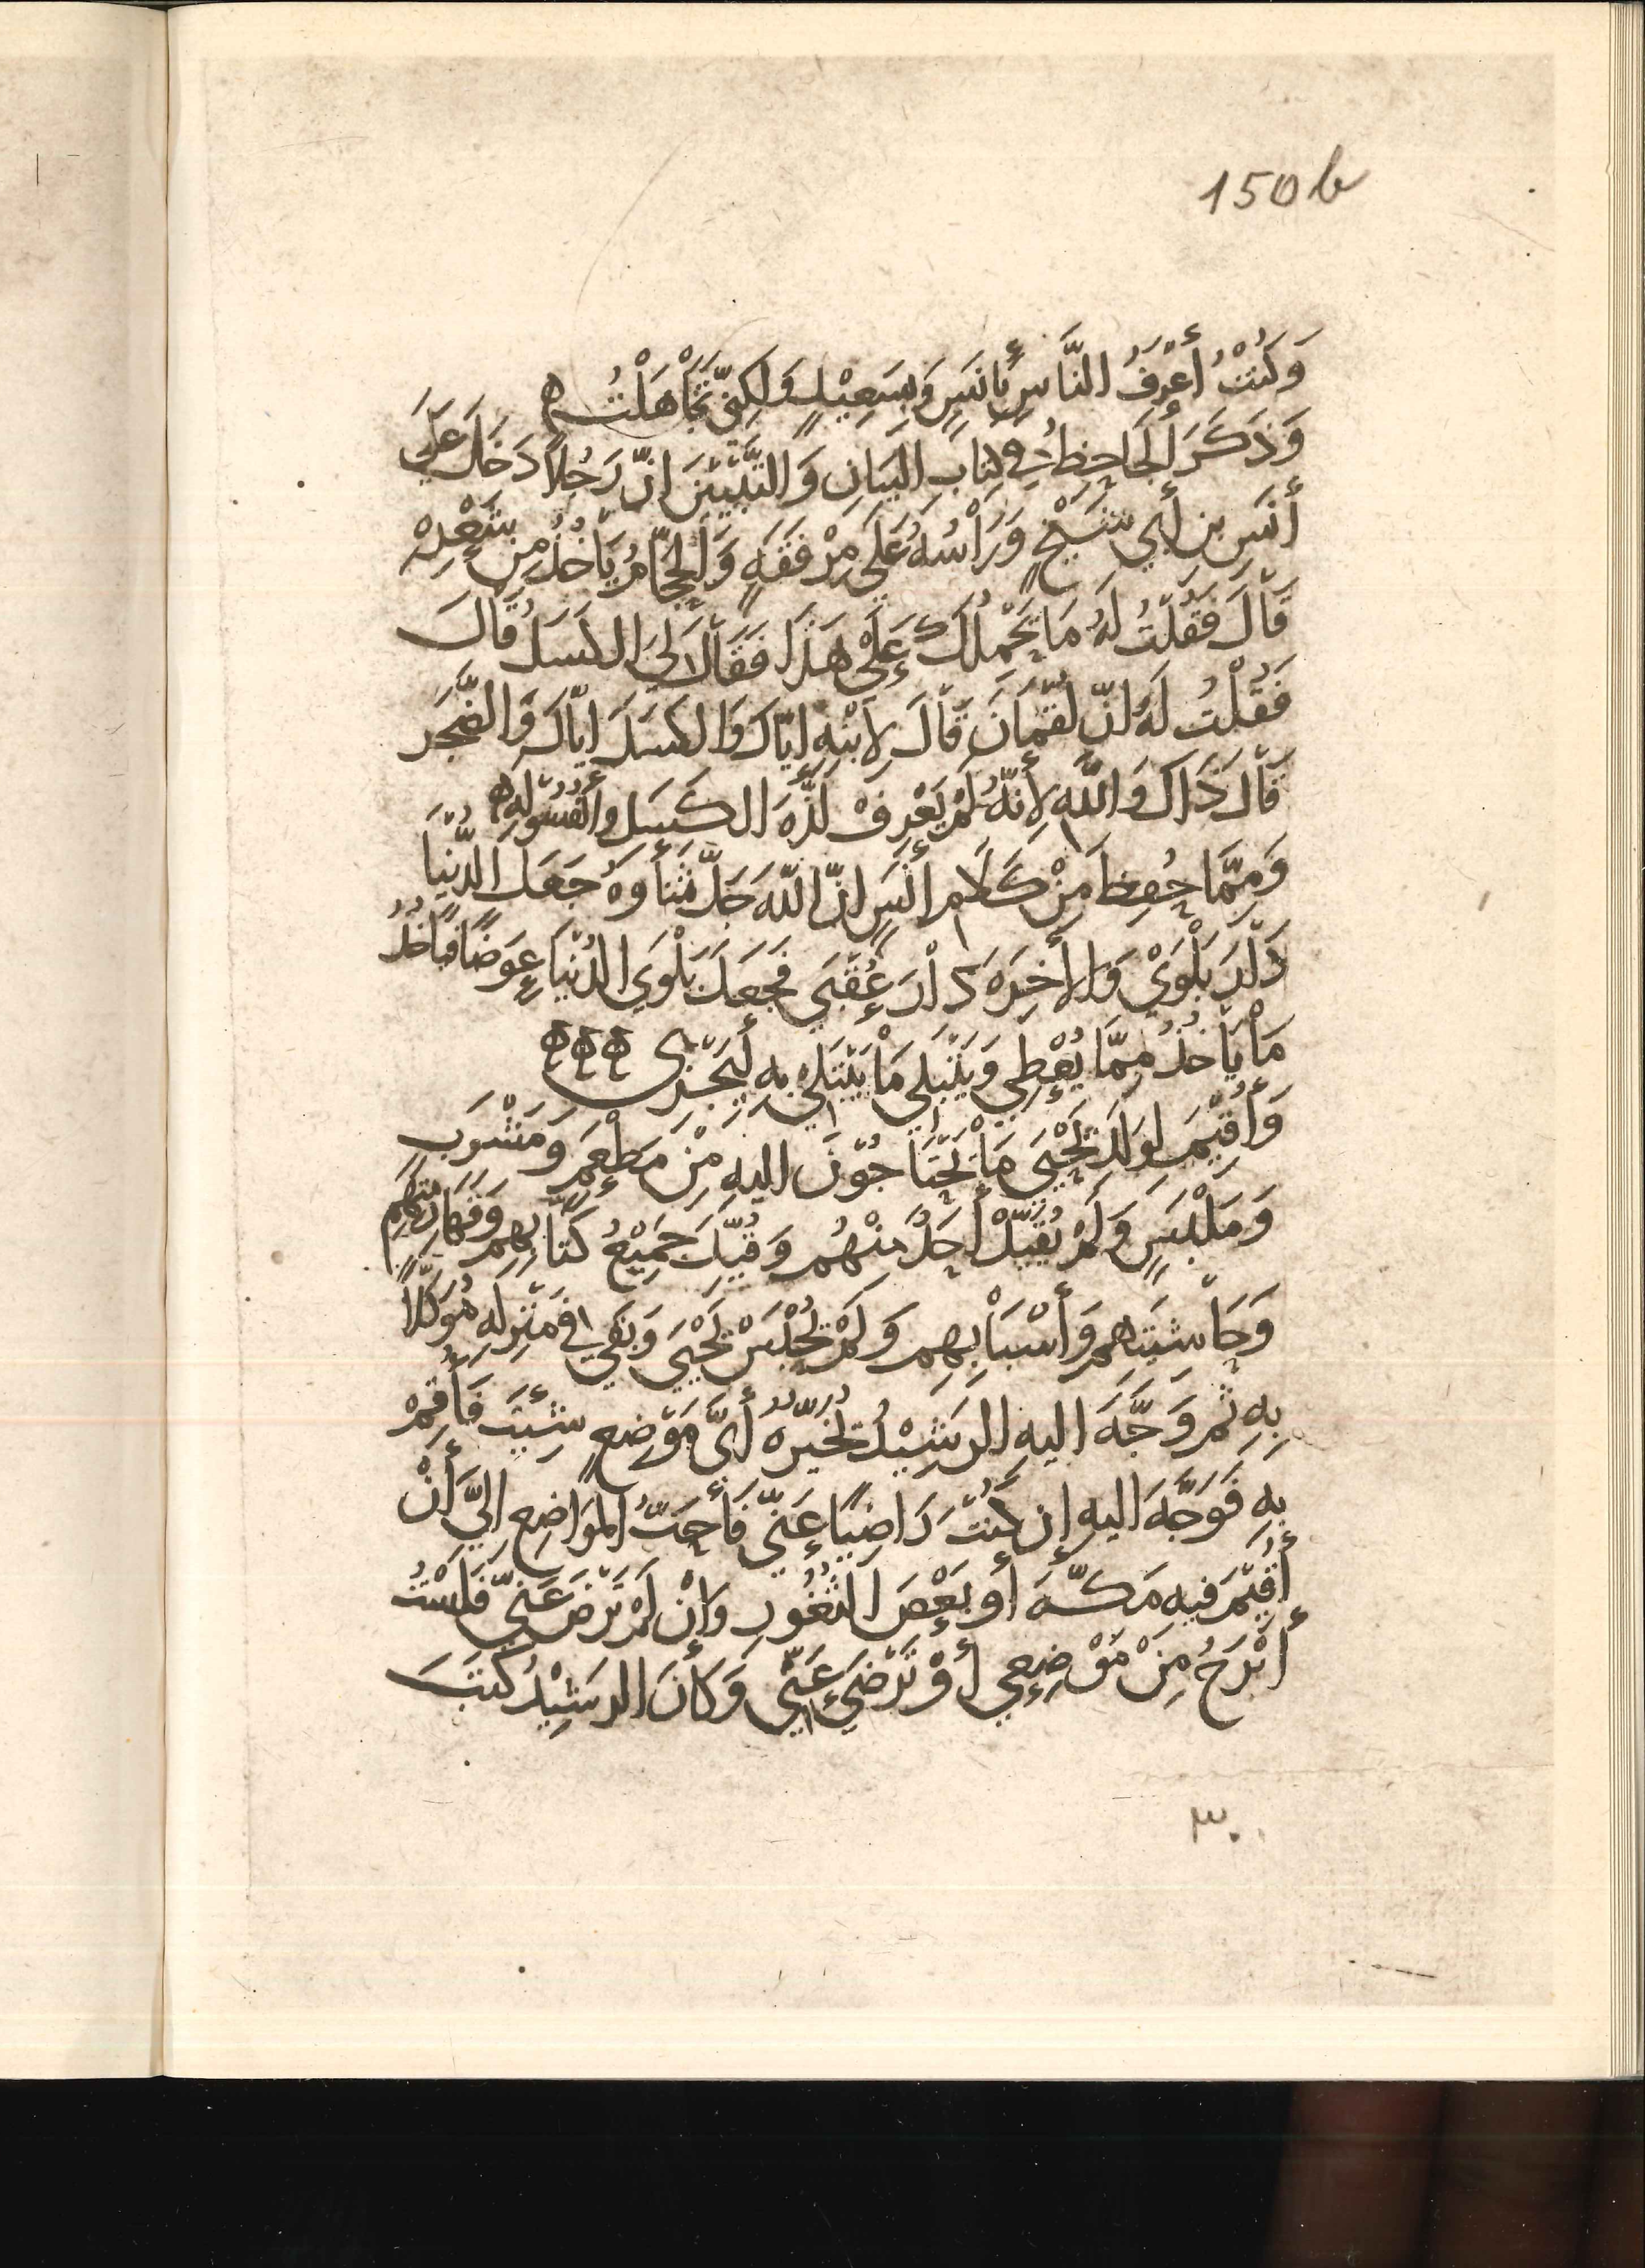 150b
وَكُنْتُ أَعْرَفُ النَّاسِ بِأَنَسٍ وَبِسَعِيْدٍ وَلٰكِنّي تَجَاْهَلْتُ ه
وَذَكَرَ الْجَاحِظُ في كِتَابِ البَيَانِ وَالتَّبْيِيْنِ انّ رَجُلاً دَخَلَ عَلَى
أَنَسِ بنِ أَبِي شَيْخٍ وَرَاْسُهُ عَلَى مِرْفَقَهٍ وَالحَجّامُ يَأْخُذُ مِن شَعْرِهْ
قَاْلَ فَقُلْتُ لَهُ مَا يَحْمِلُكَ عَلَىْ هَذَا فَقَاْلَ لِيَ الكَسَلُ قَالَ
فَقُلْتُ لَهُ انّ لُقْمَانَ قَاْلَ لِابْنِهِ ايّاكَ وَالكَسَلَ ايّاكَ وَالضَّجَر
قَاْلَ ذَاكَ وَاللّهِ لِأَنّهُ لَمْ يَعْرِفْ لَذّهَ الكَسَلِ وَالفُسُوْلَهِ ه
وَمِمَّا حُفِظَ مِنْ كَلَامِ أَنَسٍ انّ اللّهَ جَلَّ ثَنَاْوهُ جَعَلَ الدُّنْيَا
دَاْرَ بَلْوَىْ وَالاْخِرَهَ دَاْرَ عُقْبَى فَجَعَلَ بَلْوَى الدُّنْيَا عِوَضًا فَيَاخُذُ
مَاْ يَأْخُذُ مِمَّا يُعْطِي وَيَبْتَلِي مَاْ يَبْتَلِي بِهِ لِيَجْزِى ه ه ه
وَأُقِيْمَ لِوَلَدِ يَحْيَى مَاْ يَحْتَاجُوْنَ اليهِ مِنْ مَطْعَمٍ وَمَشْرَبٍ
وَمَلْبَسٍ وَلَمْ يُقَيّدْ أَحَدٌ مِنْهُم وَقُيِّدَ جَمِيْعُ كُتّابِهِم وَقَهَارِمَتِهِم
وَحَاْشِيَتِهِم وَأَسْبَاْبِهِم وَلَمْ يُحْبَسْ يَحْيَى وَبَقِيَ في مَنْزِلِهِ مُوَكّلاً
بِهِ ثُم وَجَّهَ اليهِ الرَشِيْدُ يُخَيّرُهُ أَىَّ مَوْضِعٍ شِئْتَ فَأَقِمْ
بِهِ فَوَجَّهَ اليهِ إن كُنْتَ رَاضِيًا عَنّي فَأَحَبُّ المَوَاضِعِ اليَّ أَنْ
أُقِيْمَ فِيهِ مَكّهَ أَو بَعْضَ الثُغُورِ وَإِنْ لَمْ تَرْضَ عَنّي فَلَسْتُ
أَبْرَحُ مِنْ مَوْضِعِي أَوْ تَرْضَى عَنّي وَكَاْنَ الرَشِيْدُ كَتَبَ
٣٠